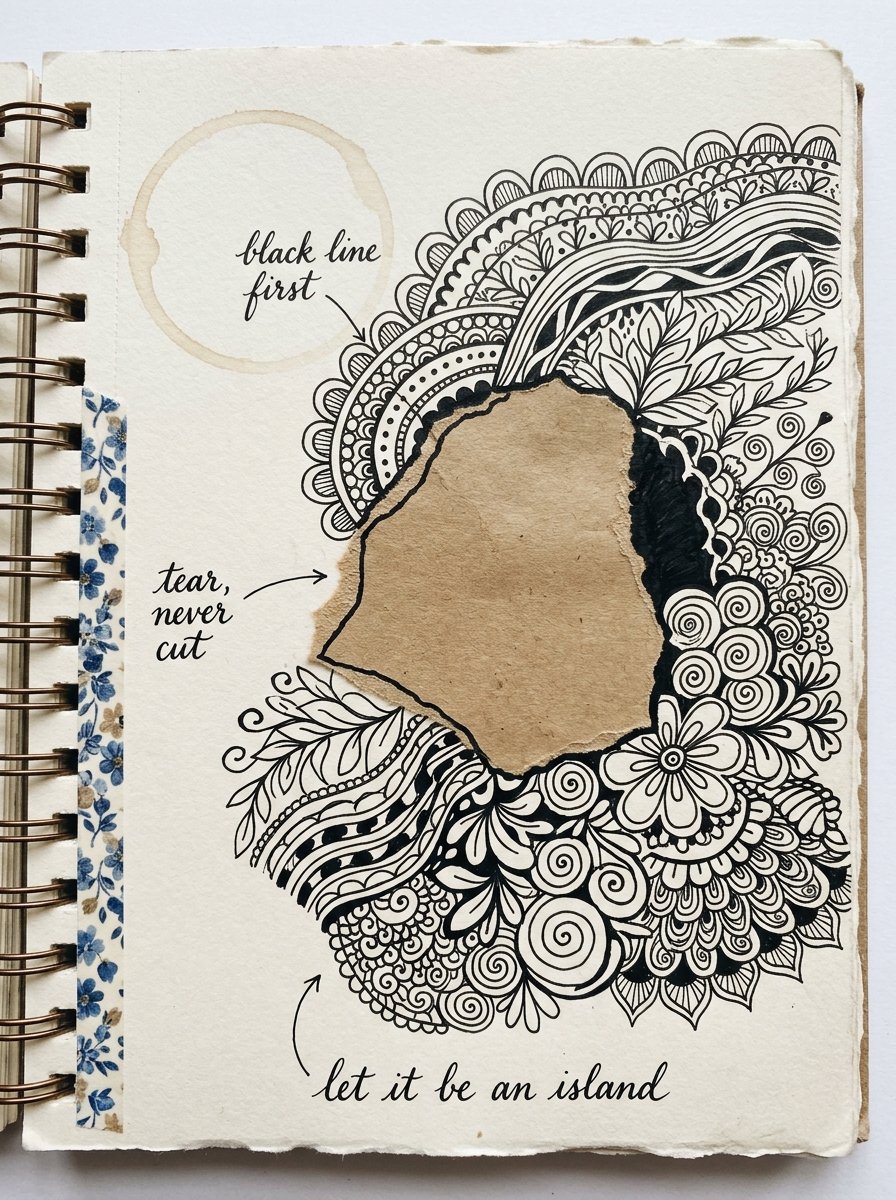 black line
first
tear,
never
cut
let it be an island